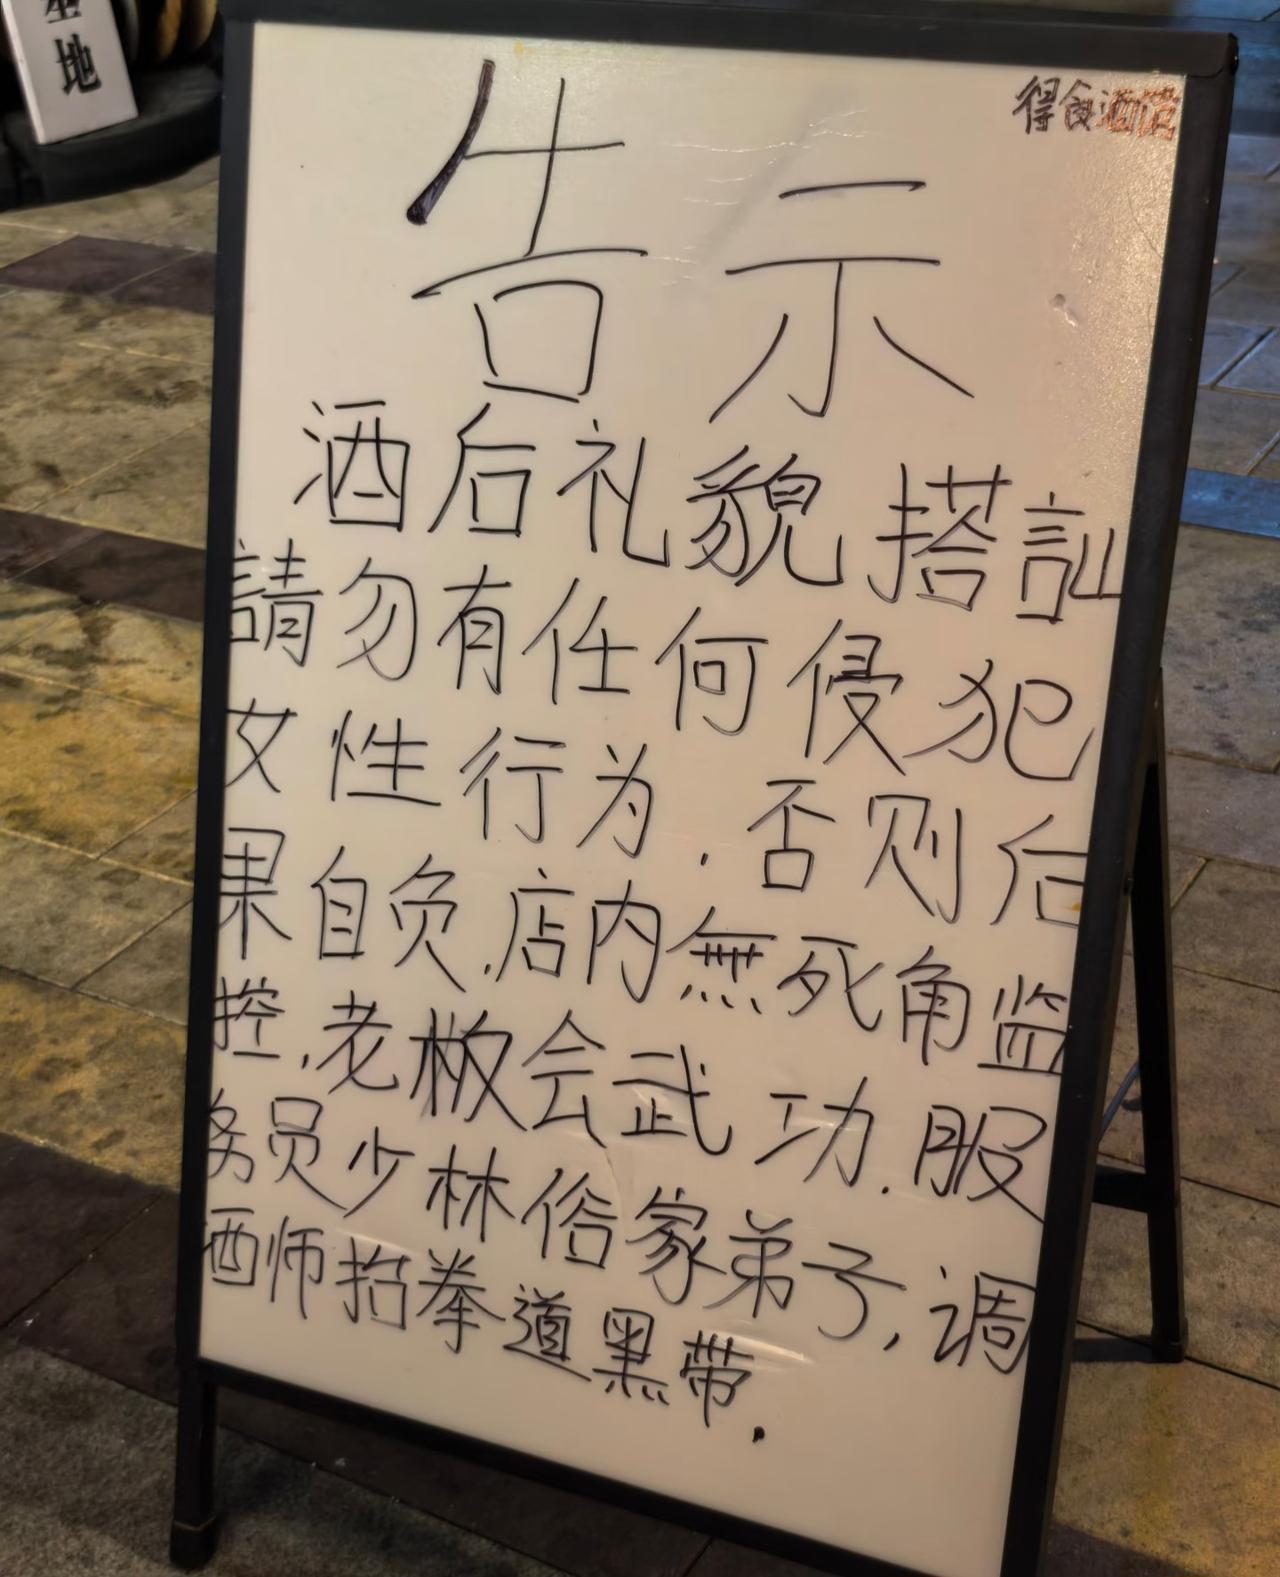 地
得食酒
告示
酒后礼貌搭訕
請勿有任何侵犯
女性行为.否则后
果自负.店内無死角监
控.老板会武功.服
务员少林俗家弟子,调
酒师抬拳道黑带.